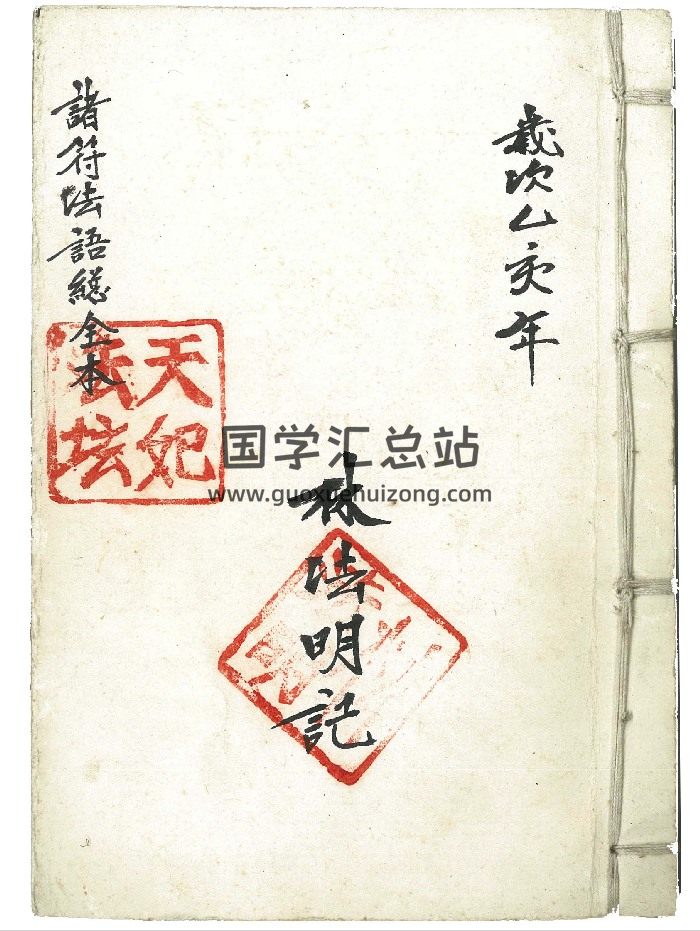 歲次乙亥年
林法明記
諸符法語總全本
天妃
法坛
国学汇总站
www.guoxuehuizong.com